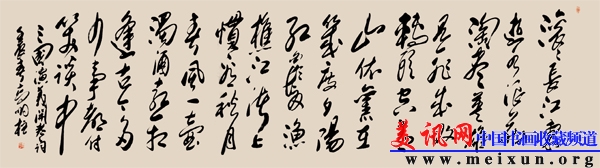 滚滚长江東
逝水浪花
淘尽英雄
是非成敗
轉頭空青
山依舊在
幾度夕陽
红白髮渔
樵江渚上
惯看秋月
春風一壺
濁酒喜相
逢古今多
少事都付
笑談中
三國演義開卷詞
美讯网
中国书画收藏频道
www.meixun.org